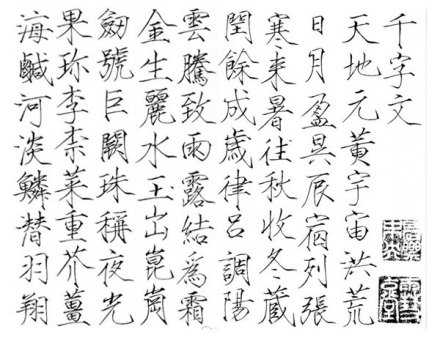 千字文
天地元黃宇宙洪荒
日月盈昃辰宿列張
寒来暑往秋收冬藏
閏餘成歳律呂調陽
雲騰致雨露結爲霜
金生麗水玉出崑崗
劒號巨闕珠稱夜光
果珎李柰菜重芥薑
海鹹河淡鱗潛羽翔